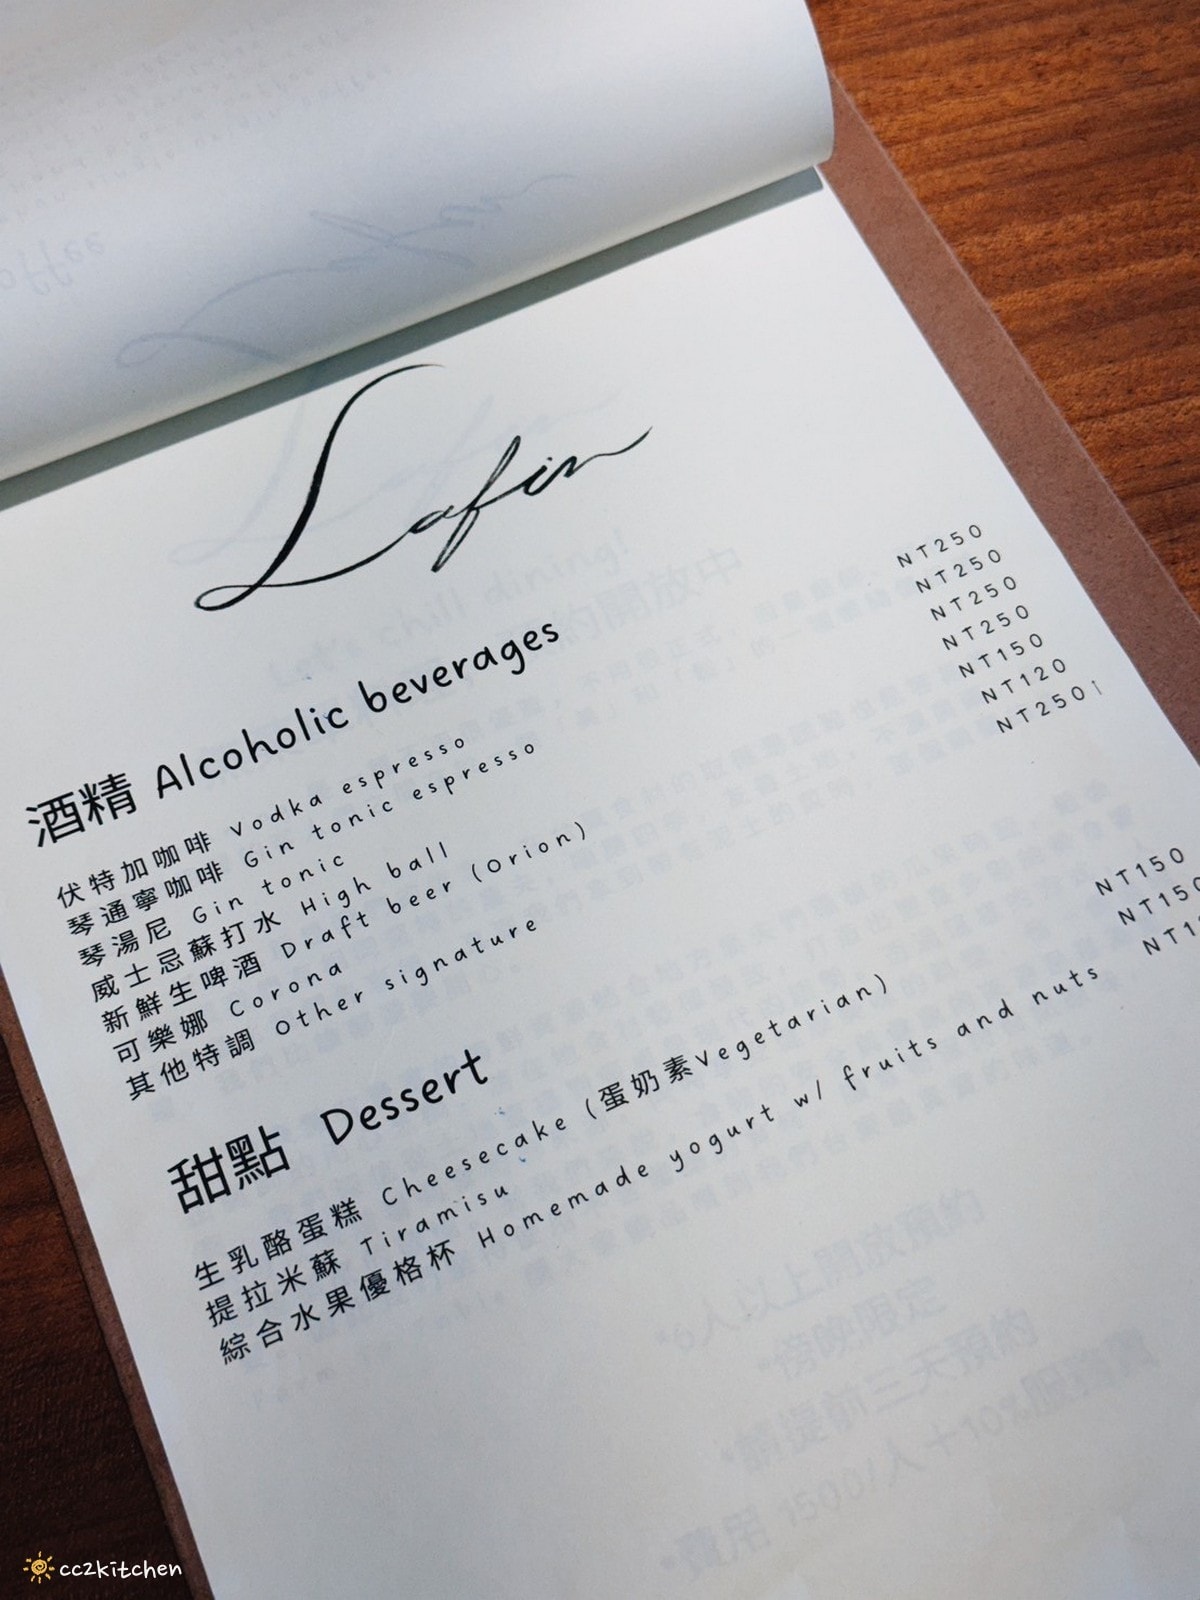 Lafin
酒精 Alcoholic beverages
伏特加咖啡 Vodka espresso NT250
琴通寧咖啡 Gin tonic espresso NT250
琴湯尼 Gin tonic NT250
威士忌蘇打水 High ball NT250
新鮮生啤酒 Draft beer (Orion) NT150
可樂娜 Corona NT120
其他特調 Other signature NT250↑
甜點 Dessert
生乳酪蛋糕 Cheesecake (蛋奶素Vegetarian) NT150
提拉米蘇 Tiramisu NT150
綜合水果優格杯 Homemade yogurt w/ fruits and nuts
cc2kitchen